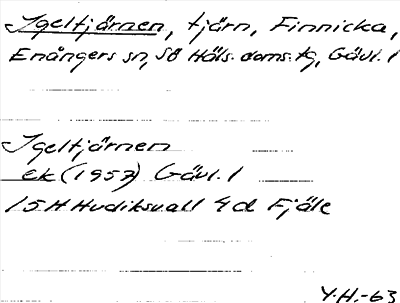 Igeltjärnen, tjärn, Finnicka,
Enångers sn, Sö Häls. doms. tg, Gävl. l
Igeltjärnen
ek (1957) Gävl. l
15H Hudiksvall 4d Fjäle
Y.H.-63